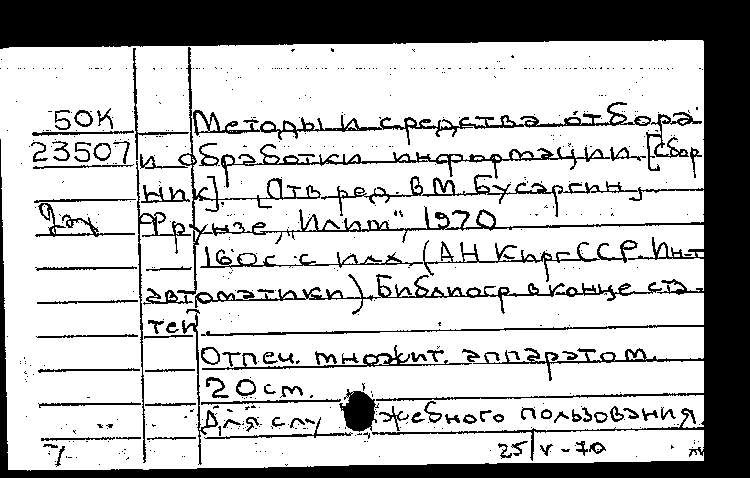 50К Методы и средства отбора
23507 и обработки информации. [Сбор
ник]. [Отв. ред. В.М. Бусаргин]
Фрунзе, „Илим", 1970
160с с илл (АН Кирг ССР. Ин-т
автоматики). Библиогр. в конце ста-
тей.
Отпеч. множит. аппаратом.
20 см.
Для служебного пользования.
25/V-70